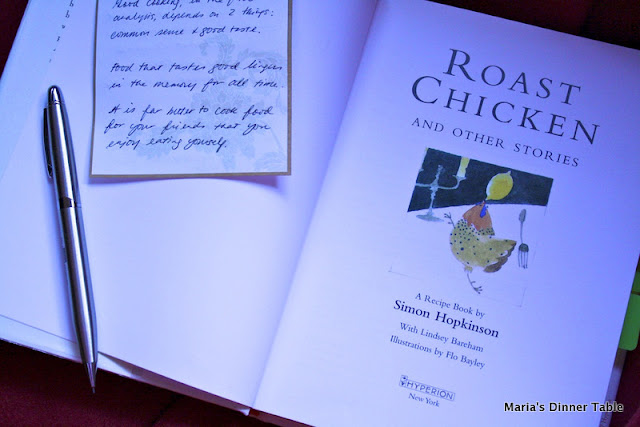 Good cooking, in the final
analysis, depends on 2 things:
common sense & good taste.
Food that tastes good lingers
in the memory for all time.
It is far better to cook food
for your friends that you
enjoy eating yourself.
ROAST
CHICKEN
AND OTHER STORIES
A Recipe Book by
Simon Hopkinson
With Lindsey Bareham
Illustrations by Flo Bayley
HYPERION
New York
Maria's Dinner Table